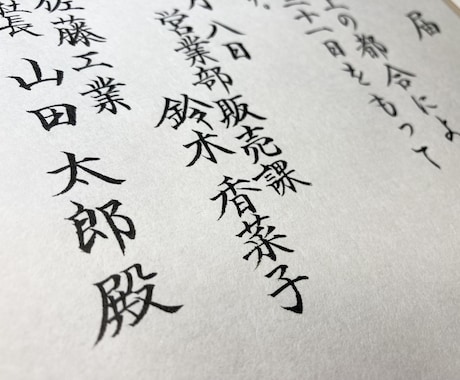 届
上の都合によ
三十一日をもって
す。
月八日
営業部販売課
鈴木 香菜子
佐藤工業
社長 山田 太郎 殿